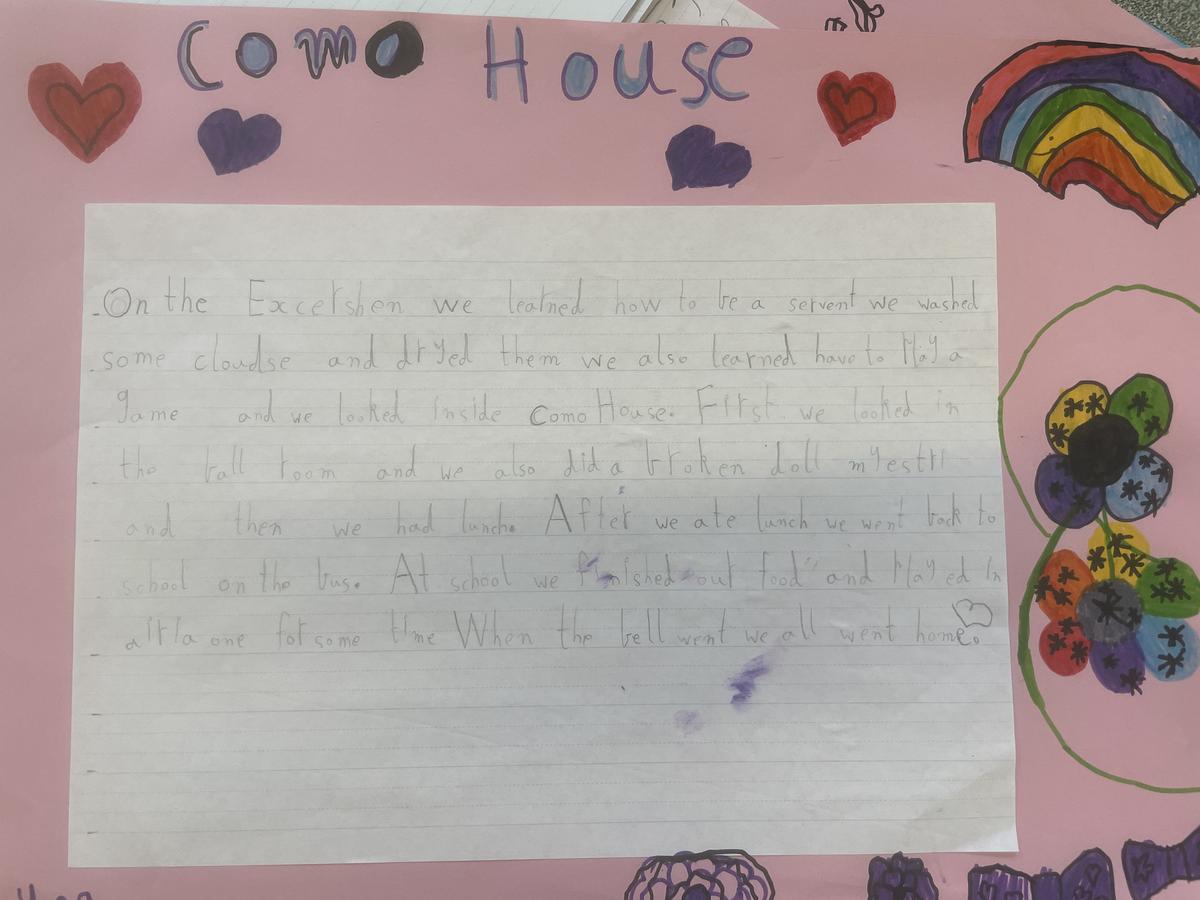 Como House
On the Excershen we learned how to be a servent we washed
some cloudse and dryed them we also learned have to Play a
game and we looked inside Como House. First we looked in
the ball room and we also did a broken doll myestri
and then we had lunch. After we ate lunch we went back to
school on the bus. At school we finished our food and Played in
airla one for some time When the bell went we all went home.